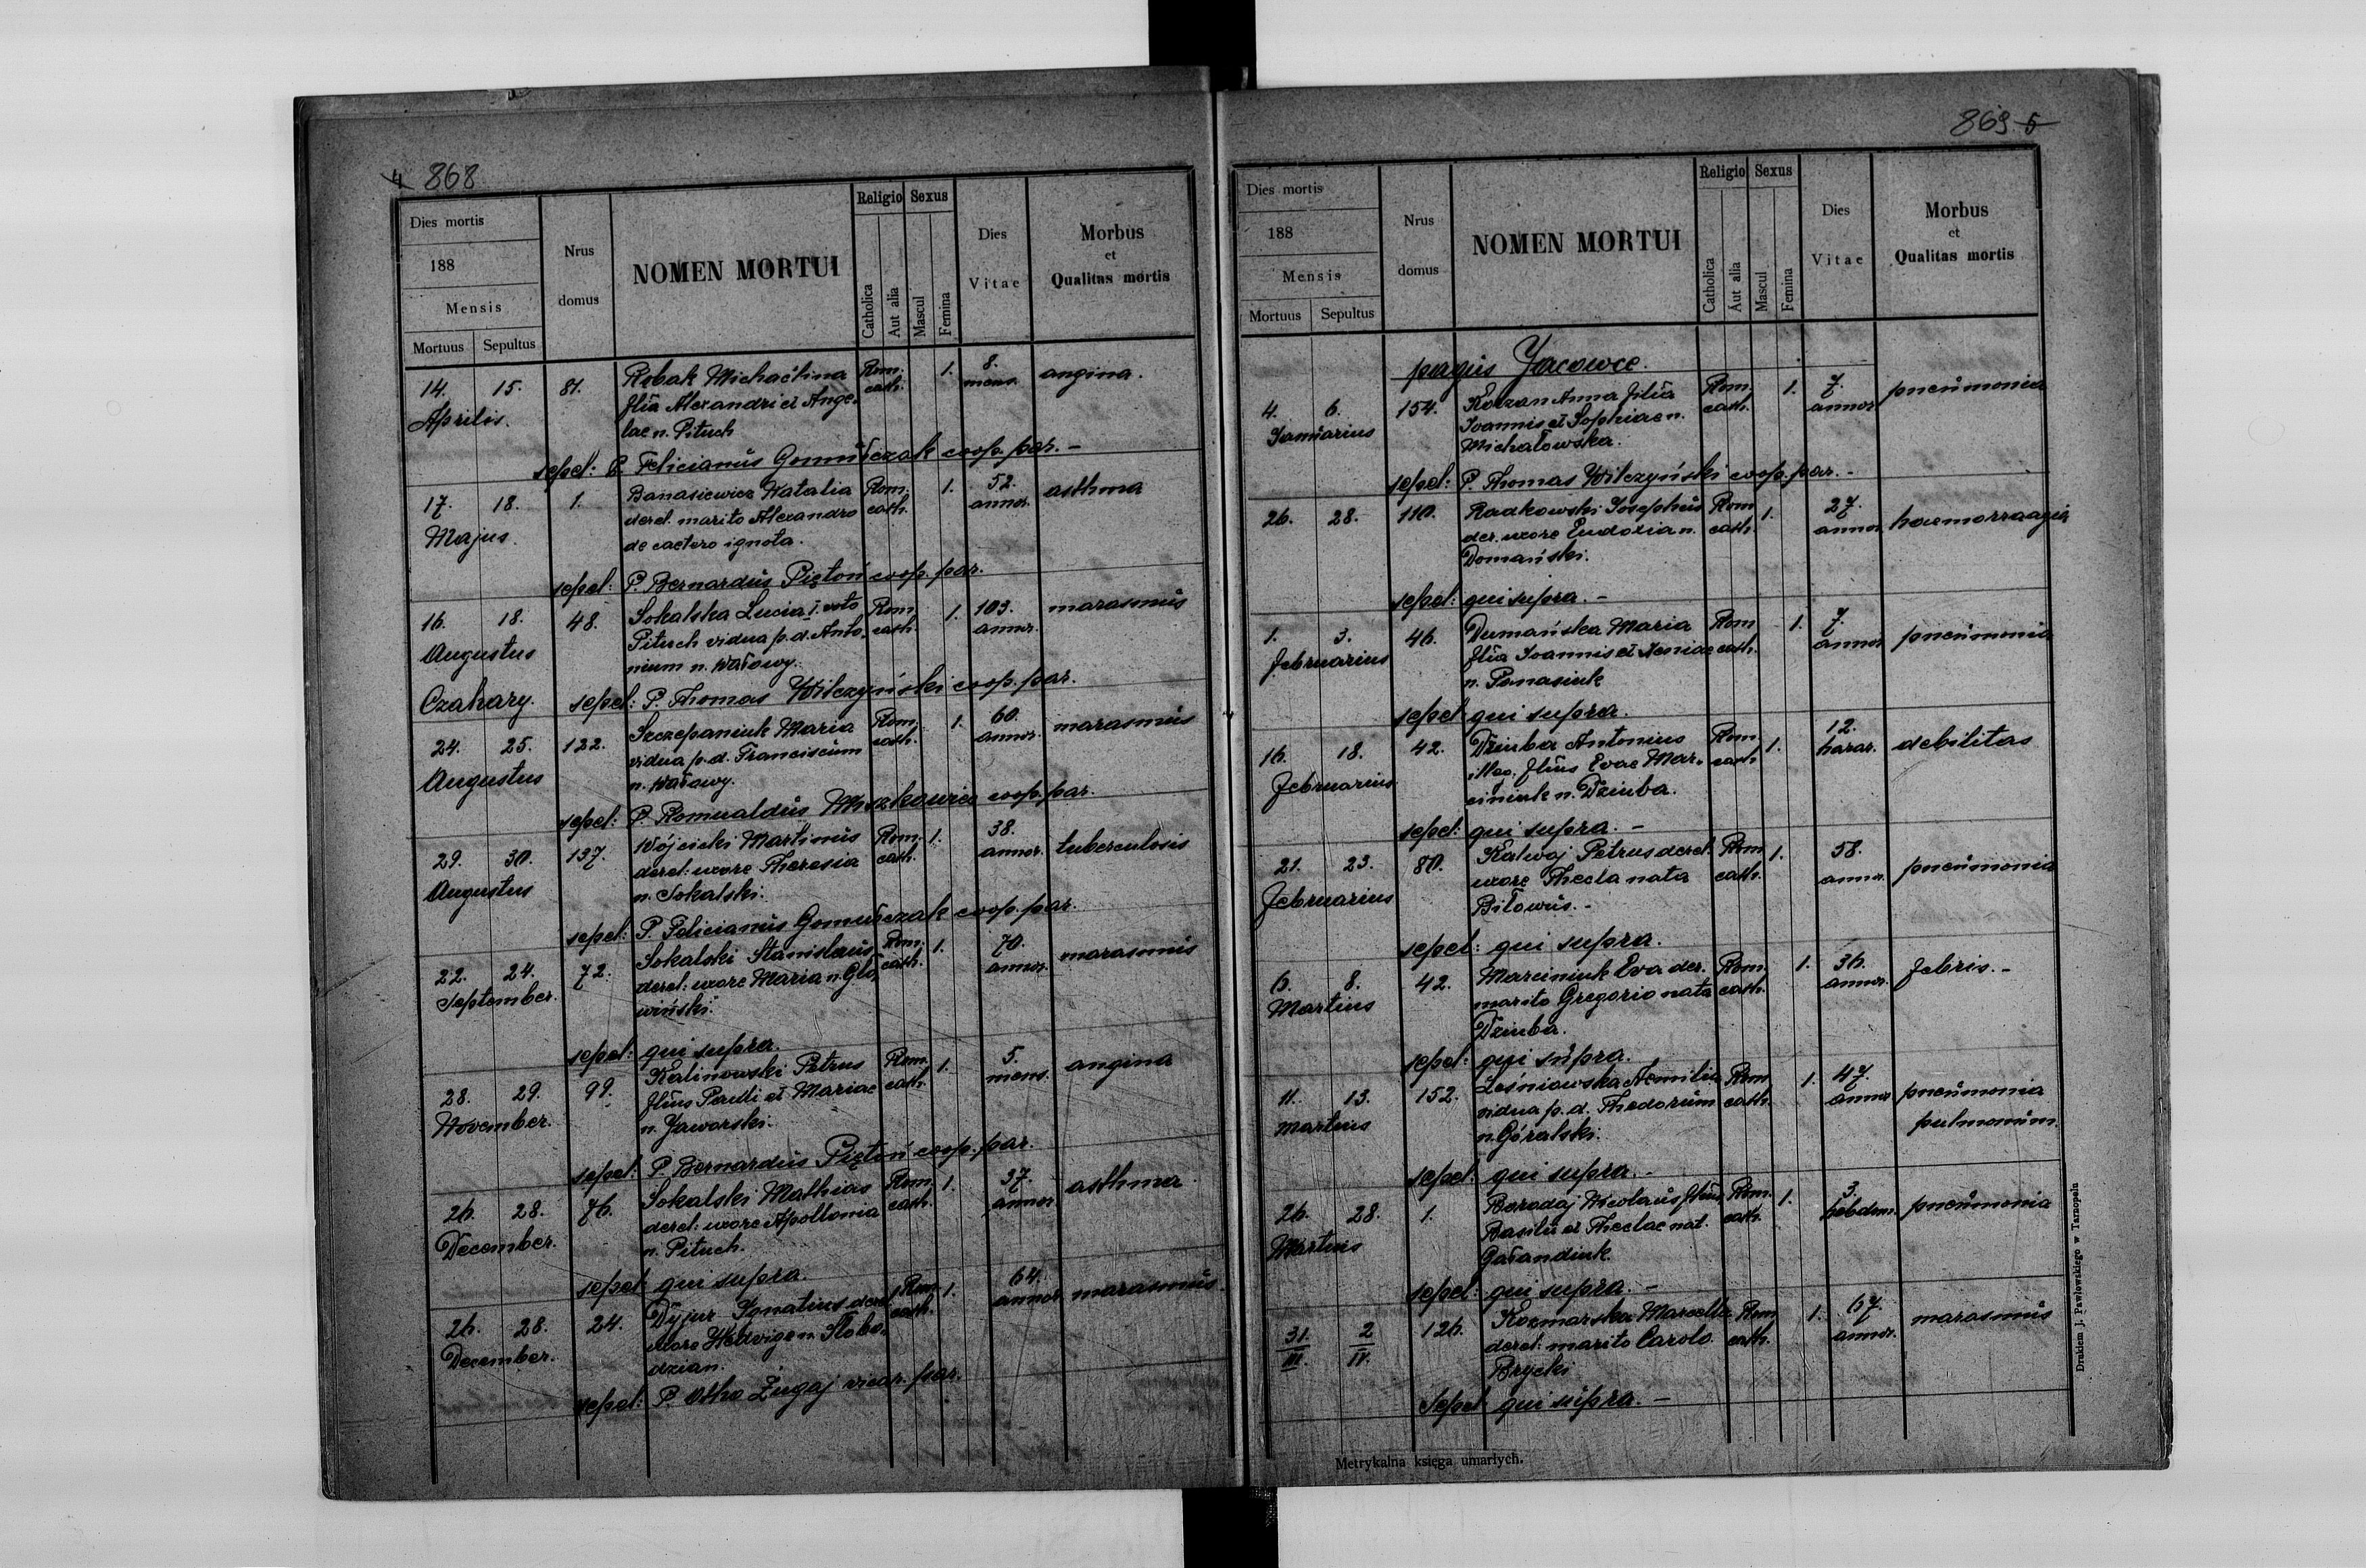 4 868
Dies mortis
188
Mensis
Mortuus Sepultus
Nrus domus
NOMEN MORTUI
Religio
Catholica
Aut alia
Sexus
Mascul
Femina
Dies Vitae
Morbus et Qualitas mortis
14. 15. 81. Robak Michaëlina Rom. 1. 8. angina.
Aprilis. filia Alexandri et Ange- cath. mens.
lae n. Pituch
sepel: P. Felicianus Gomułczak coop. par. -
17. 18. 1. Banasiewicz Natalia Rom. 1. 52. asthma
Majus. derel. marito Alexandro cath. annor.
de caetero ignota.
sepel: P. Bernardus Piętoń coop. par.
16. 18. 48. Sokalska Lucia I. voto Rom. 1. 103. marasmus
Augustus Pituch vidua p. d. Anto- cath. annor.
nium n. Wałowy.
Czahary. sepel: P. Thomas Wilczyński coop. par.
24. 25. 122. Szczepaniuk Maria Rom. 1. 60. marasmus
Augustus vidua p. d. Franciscum cath. annor.
n. Wałowy.
sepel: P. Romualdus coop. par.
29. 30. 137. Wójcicki Martinus Rom. 1. 38. tuberculosis
Augustus derel: uxore Theresia cath. annor.
n. Sokalski.
sepel: P. Felicianus Gomułczak coop. par.
22. 24. 72. Sokalski Stanislaus Rom. 1. 70. marasmus
September. derel: uxore Maria n. Gło- cath. annor.
wiński.
sepel: qui supra.
28. 29. 99. Kalinowski Petrus Rom. 1. 5. angina
November. filius Pauli et Mariae cath. mens.
n. Jaworski.
sepel: P. Bernardus Piętoń coop. par.
26. 28. 76. Sokalski Mathias Rom. 1. 37. asthma
December. derel: uxore Apollonia cath. annor.
n. Pituch.
sepel: qui supra.
26. 28. 24. Dyjur Ignatius derel. Rom. 1. 64. marasmus.
December. uxore Hedvige n. Słobo- cath. annor.
dzian.
sepel: P. Otho Żugaj vicar. par.
869 5
Dies mortis
188
Mensis
Mortuus Sepultus
Nrus domus
NOMEN MORTUI
Religio
Catholica
Aut alia
Sexus
Mascul
Femina
Dies Vitae
Morbus et Qualitas mortis
pagus Jacowce.
4. 6. 154. Korzan Anna filia Rom. 1. 7. pneumonia
Januarius Joannis et Sophiae n. cath. annor.
Michałowska.
sepel: P. Thomas Wilczyński coop. par. -
26. 28. 110. Radkowski Josephus Rom. 1. 27. haemorraagia
der. uxore Eudoxia n. cath. annor.
Domański.
sepel: qui supra. -
1. 3. 46. Dumańska Maria Rom. 1. 7. pneumonia
februarius filia Joannis et Xeniae cath. annor.
n. Panasiuk
sepel: qui supra.
16. 18. 42. Dziuba Antonius Rom. 1. 12. debilitas
februarius illeg. filius Evae Mar- cath. horar.
ciniuk n. Dziuba.
sepel: qui supra. -
21. 23. 80. Kalwaj Petrus derel. Rom. 1. 58. pneumonia
februarius uxore Thecla nata cath. annor.
Biłowus. -
sepel: qui supra.
6. 8. 42. Marciniuk Eva der. Rom. 1. 36. febris. -
Martius marito Gregorio nata cath. annor.
Dziuba.
sepel: qui supra.
11. 13. 152. Leśniowska Aemilia Rom. 1. 47. pneumonia
Martius vidua p. d. Thedorum cath. annor. pulmonum.
n. Góralski.
sepel: qui supra. -
26. 28. 1. Borodaj Nicolaus filius Rom. 1. 3. pneumonia
Martius Basilii et Theclae nat. cath. hebdom.
Gałandiuk.
sepel: qui supra. -
31. 2 126. Kozmarska Marcella Rom. 1. 67. marasmus
III. IV. derel: marito Carolo. cath. annor.
Brycki
sepel: qui supra. -
Metrykalna księga umarłych.
Drukiem J. Pawłowskiego w Tarnopolu